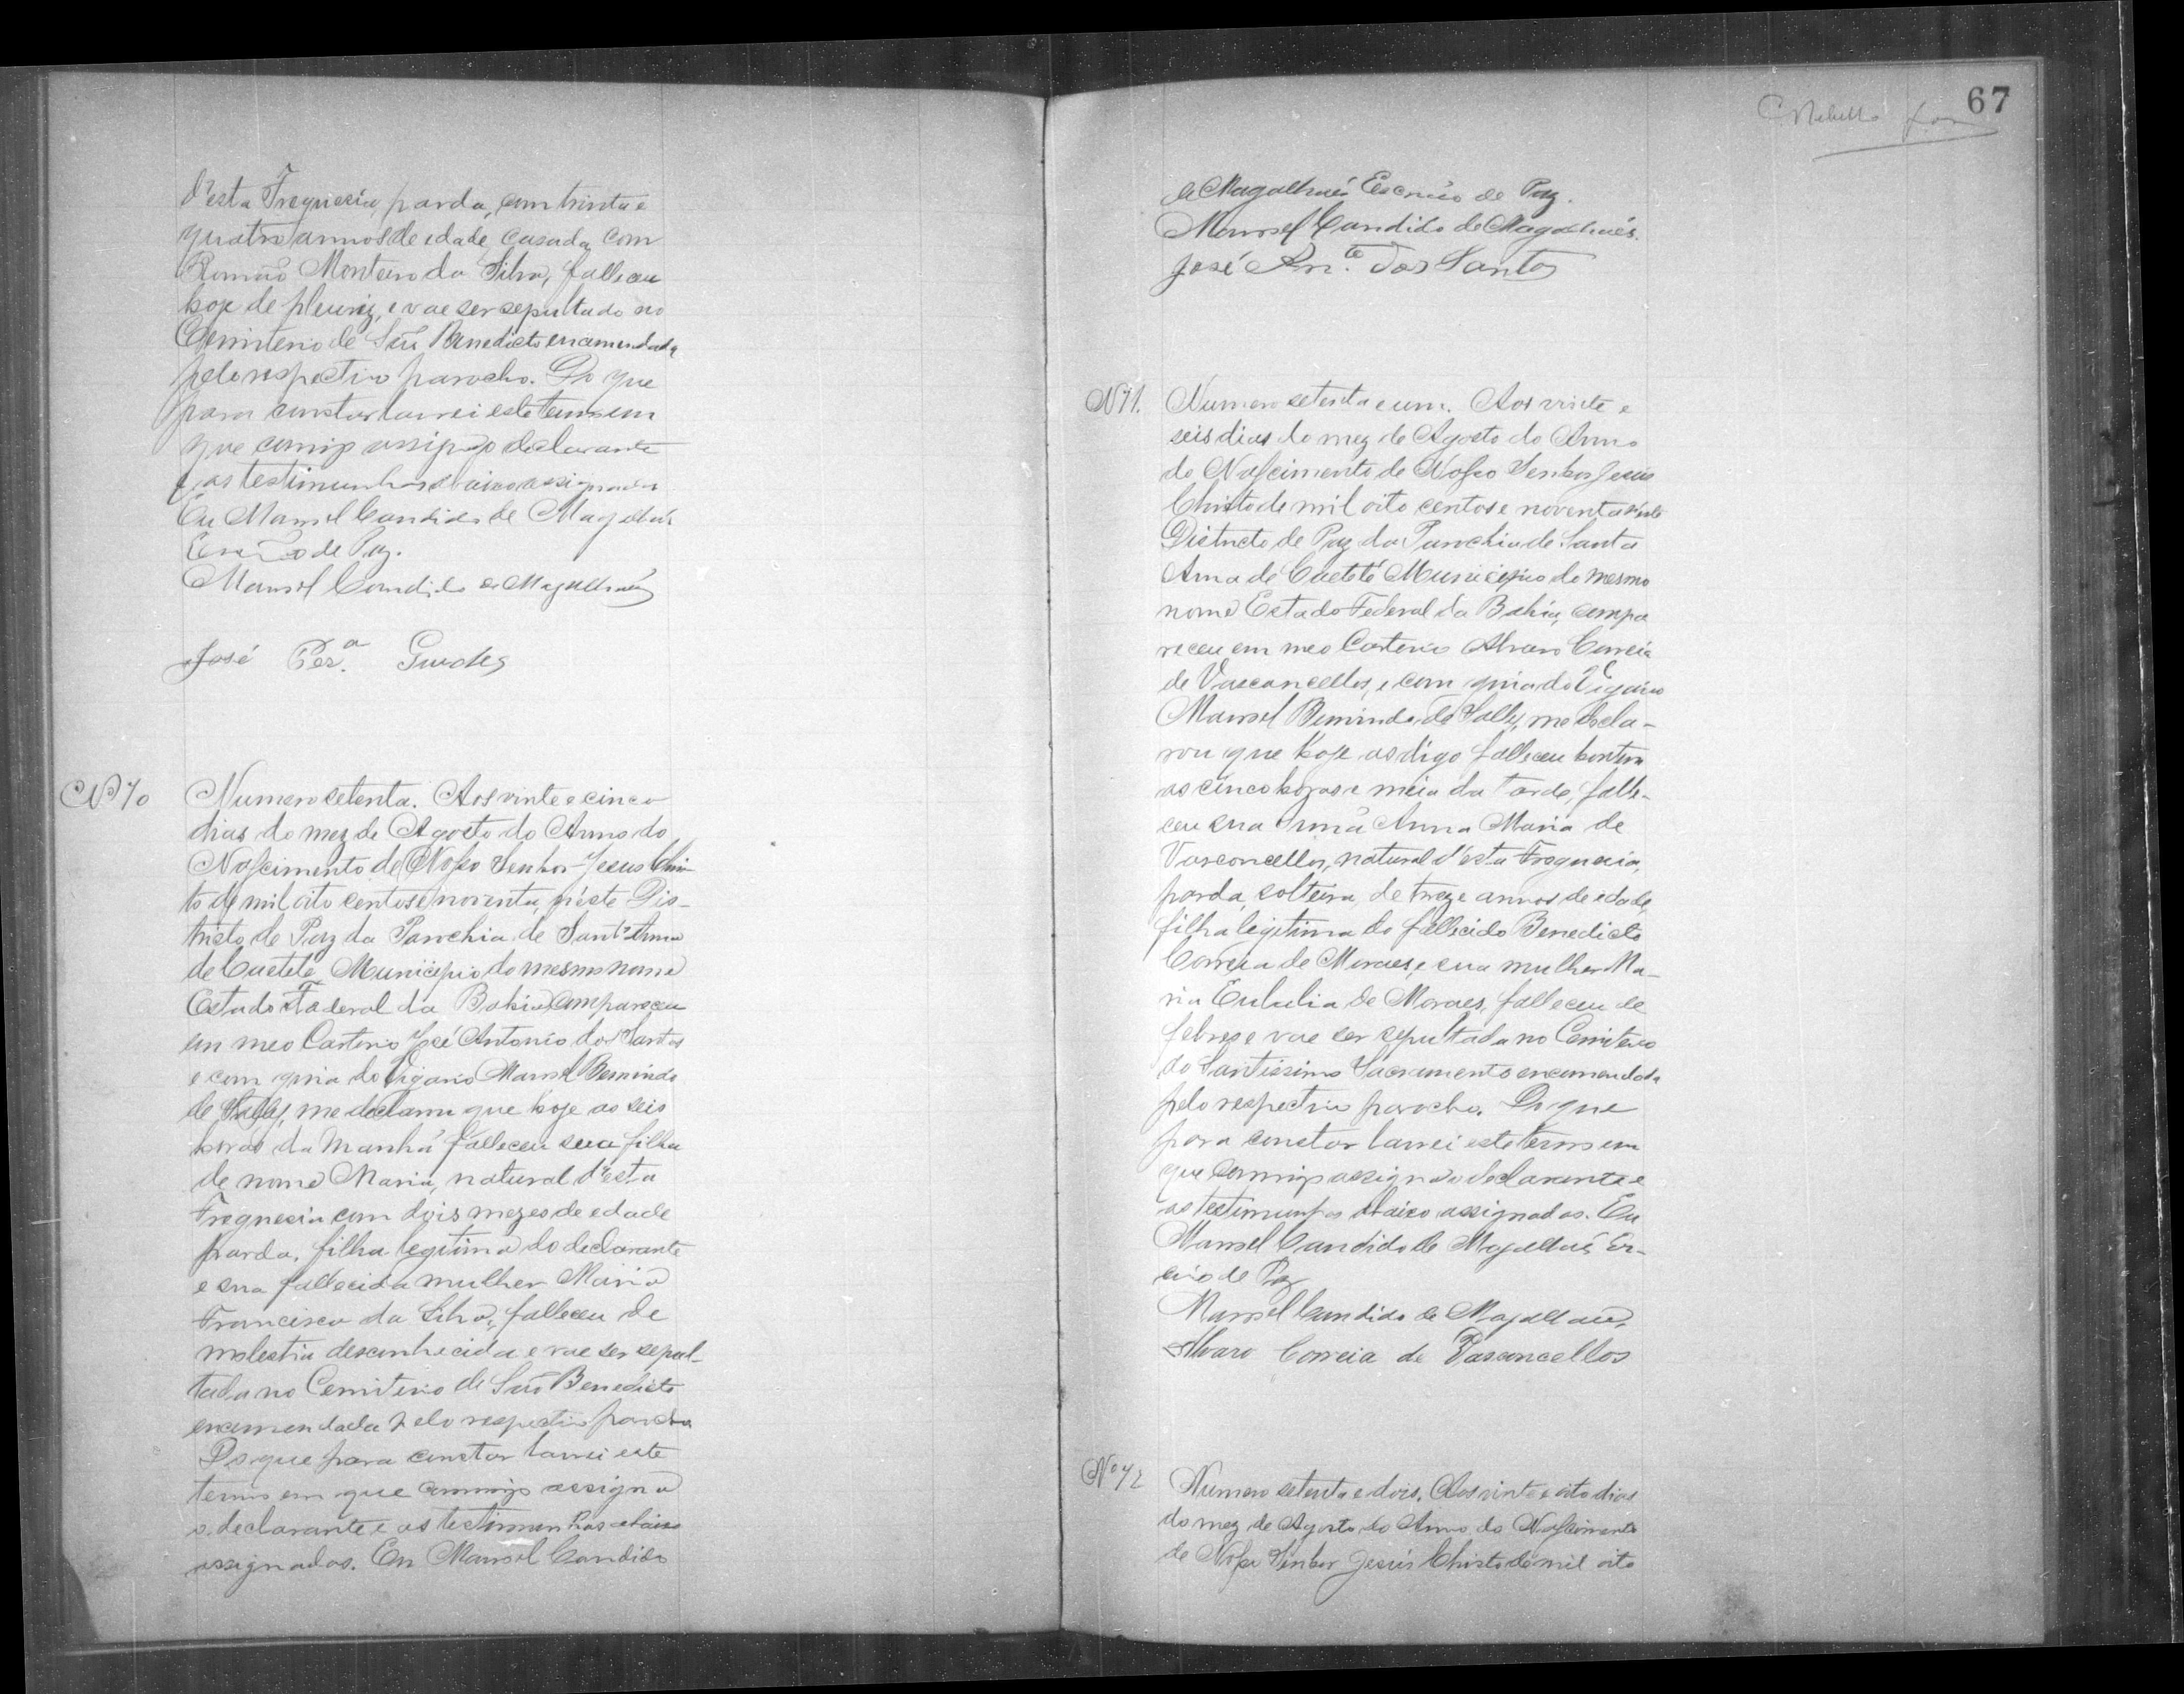 d'esta Freguesia, parda, com trinta e
quatro annos de edade, casada com
Romão Monteiro da Silva, falleceu
hoje de pleuriz, e vae ser sepultado no
Cemiterio de São Benedicto encamendada
pelo respectivo parocho. Do que
para constar lavrei este termo em
que comigo assigna o declarante
e as testimunhas abaixo assignadas
Eu Manoel Candido de Magalhães
Escrivão de Paz.
Manoel Candido de Magalhães
José Per.ª Guedes
Nº 70
Numero setenta. Aos vinte e cinco
dias do mez de Agosto do Anno do
Nascimento de Nosso Senhor Jesus Chris-
to de mil oito centos e noventa, n'este Dis-
tricto de Paz da Parochia de Sant'Anna
de Caeteté Municipio do mesmo nome
Estado Federal da Bahia, compareceu
em meo Cartorio José Antonio dos Santos
e com guia do Vigario Manoel Bemindo
de Salles, me declarou que hoje as seis
horas da manhã falleceu sua filha
de nome Maria, natural d'esta
Freguesia com dois mezes de edade
parda, filha legitima do declarante
e sua fallecida mulher Maria
Francisca da Silva, falleceu de
molestia desconhecida e vae ser sepul-
tada no Cemiterio de São Benedicto
encamendada pelo respectivo parocho
Do que para constar lavrei este
termo em que commigo assigna
o declarante e as testimunhas abaixo
assignadas. Eu Manoel Candido
67
de Magalhães Escrivão de Paz.
Manoel Candido de Magalhães.
José Ant.º dos Santos
N 71.
Numero setenta e um. Aos vinte e
seis dias do mez de Agosto do Anno
do Nascimento de Nosso Senhor Jesus
Christo de mil oito centos e noventa n'este
Districto de Paz da Parochia de Santa
Anna de Caeteté Municipio do mesmo
nome Estado Federal da Bahia, compa
receu em meo Cartorio Alvaro Correia
de Vasconcellos, e com guia do Vigario
Manoel Bemindo de Salles, me decla-
rou que hoje as digo falleceu hontem
as cinco horas e meia da tarde, falle-
ceu sua Irmã Anna Maria de
Vasconcellos, natural d'esta Freguesia,
parda, solteira, de treze annos de edade,
filha legitima do fallecido Benedicto
Correia de Moraes, e sua mulher Ma-
ria Eulalia de Moraes, falleceu de
febres e vae ser sepultada no Cemiterio
do Santissimo Sacramento encamendada
pelo respectivo parocho. Do que
para constar lavrei este termo em
que commigo assigna o declarante e
as testimunhas abaixo assignadas. Eu
Manoel Candido de Magalhães Es-
crivão de Paz
Manoel Candido de Magalhães.
Alvaro Correia de Vasconcellos
Nº 72
Numero setenta e dois. Aos vinte e oito dias
do mez de Agosto do Anno do Nascimento
de Nosso Senhor Jesus Christo de mil oito